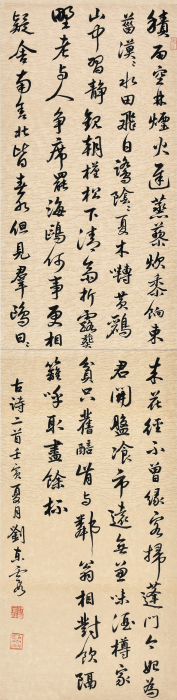 積雨空林煙火遲蒸藜炊黍餉東
菑漠漠水田飛白鷺陰陰夏木囀黃鸝
山中習靜觀朝槿松下清齋折露葵
野老與人爭席罷海鷗何事更相
疑舍南舍北皆春水但見羣鷗日日
來花徑不曾緣客掃蓬門今始為
君開盤飧市遠無兼味酒樽家
貧只舊醅肯與鄰翁相對飲隔
籬呼取盡餘杯
古诗二首壬寅夏月劉東